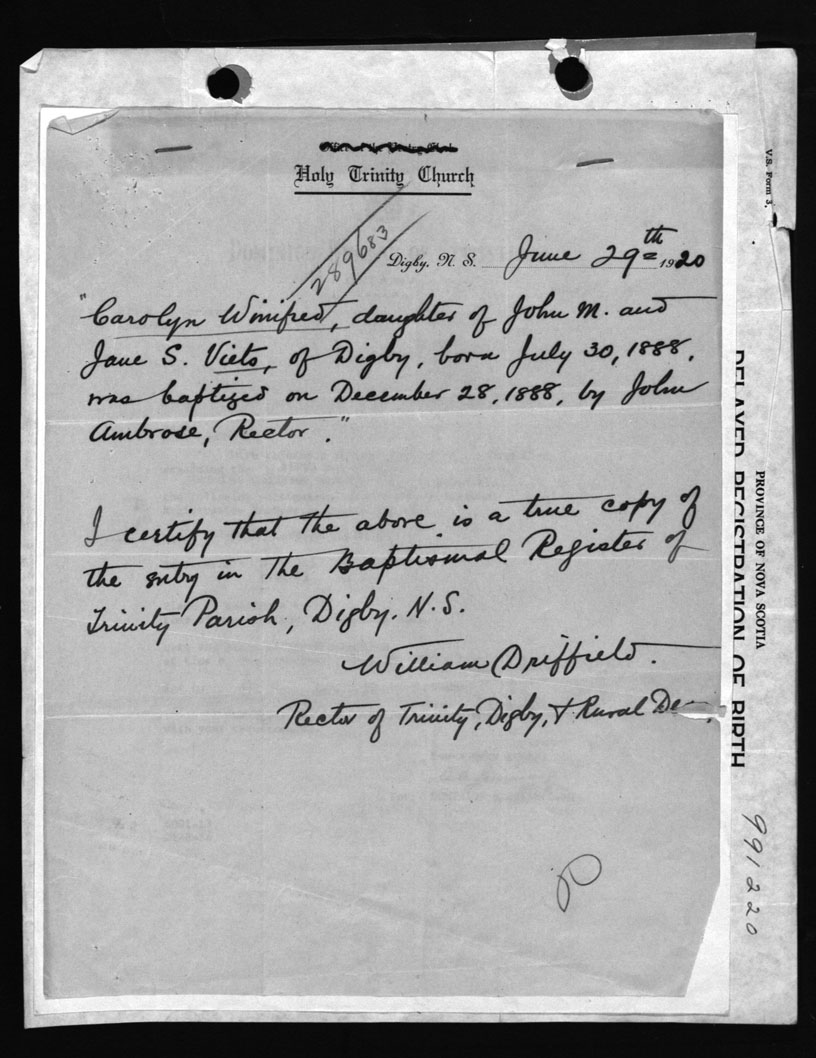 Holy Trinity Church
289683
Digby, N. S. June 29th 1920
"Carolyn Winifred, daughter of John M. and
Jane S. Viets, of Digby, born July 30, 1888,
was baptized on December 28, 1888, by John
Ambrose, Rector."
I certify that the above is a true copy of
the entry in the Baptismal Register of
Trinity Parish, Digby. N.S.
William Driffield.
Rector of Trinity, Digby, & Rural
V.S. Form 3.
PROVINCE OF NOVA SCOTIA
DELAYED REGISTRATION OF BIRTH
991220